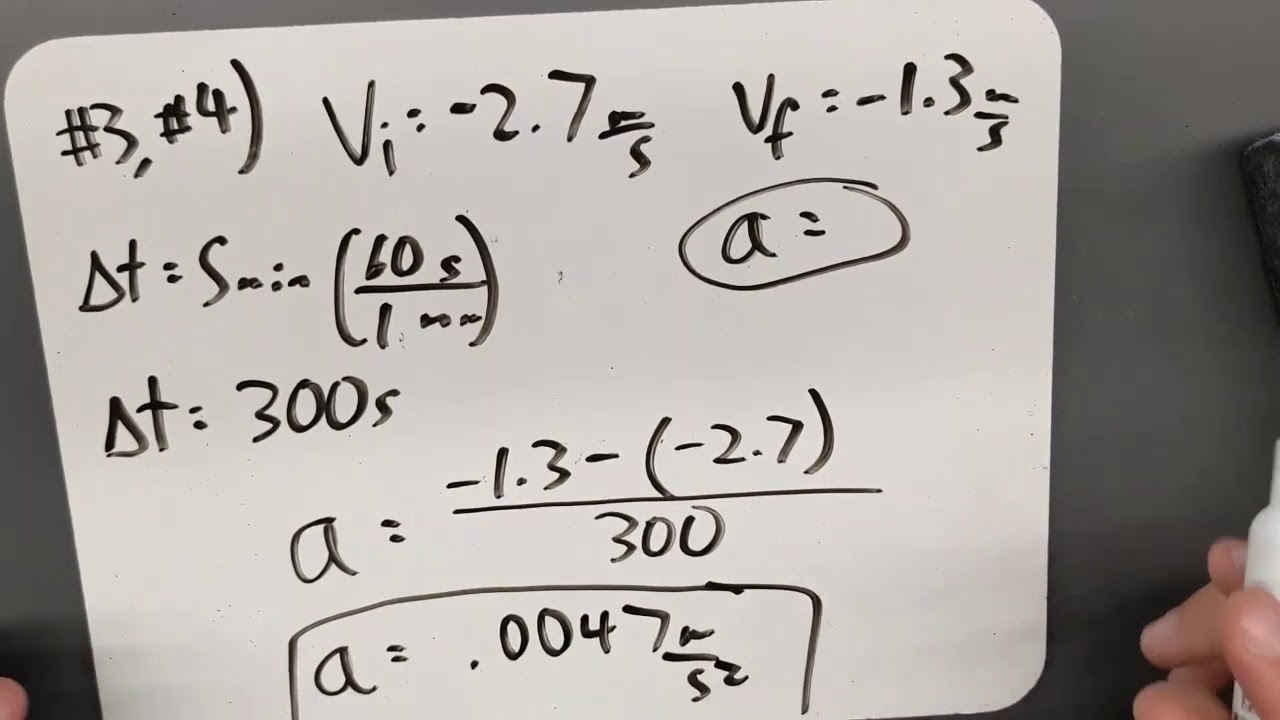 #3, #4) Vi = -2.7 m/s Vf = -1.3 m/s
a =
Δt = 5 min (60 s / 1 min)
Δt = 300s
a = -1.3 - (-2.7) / 300
a = .0047 m/s²